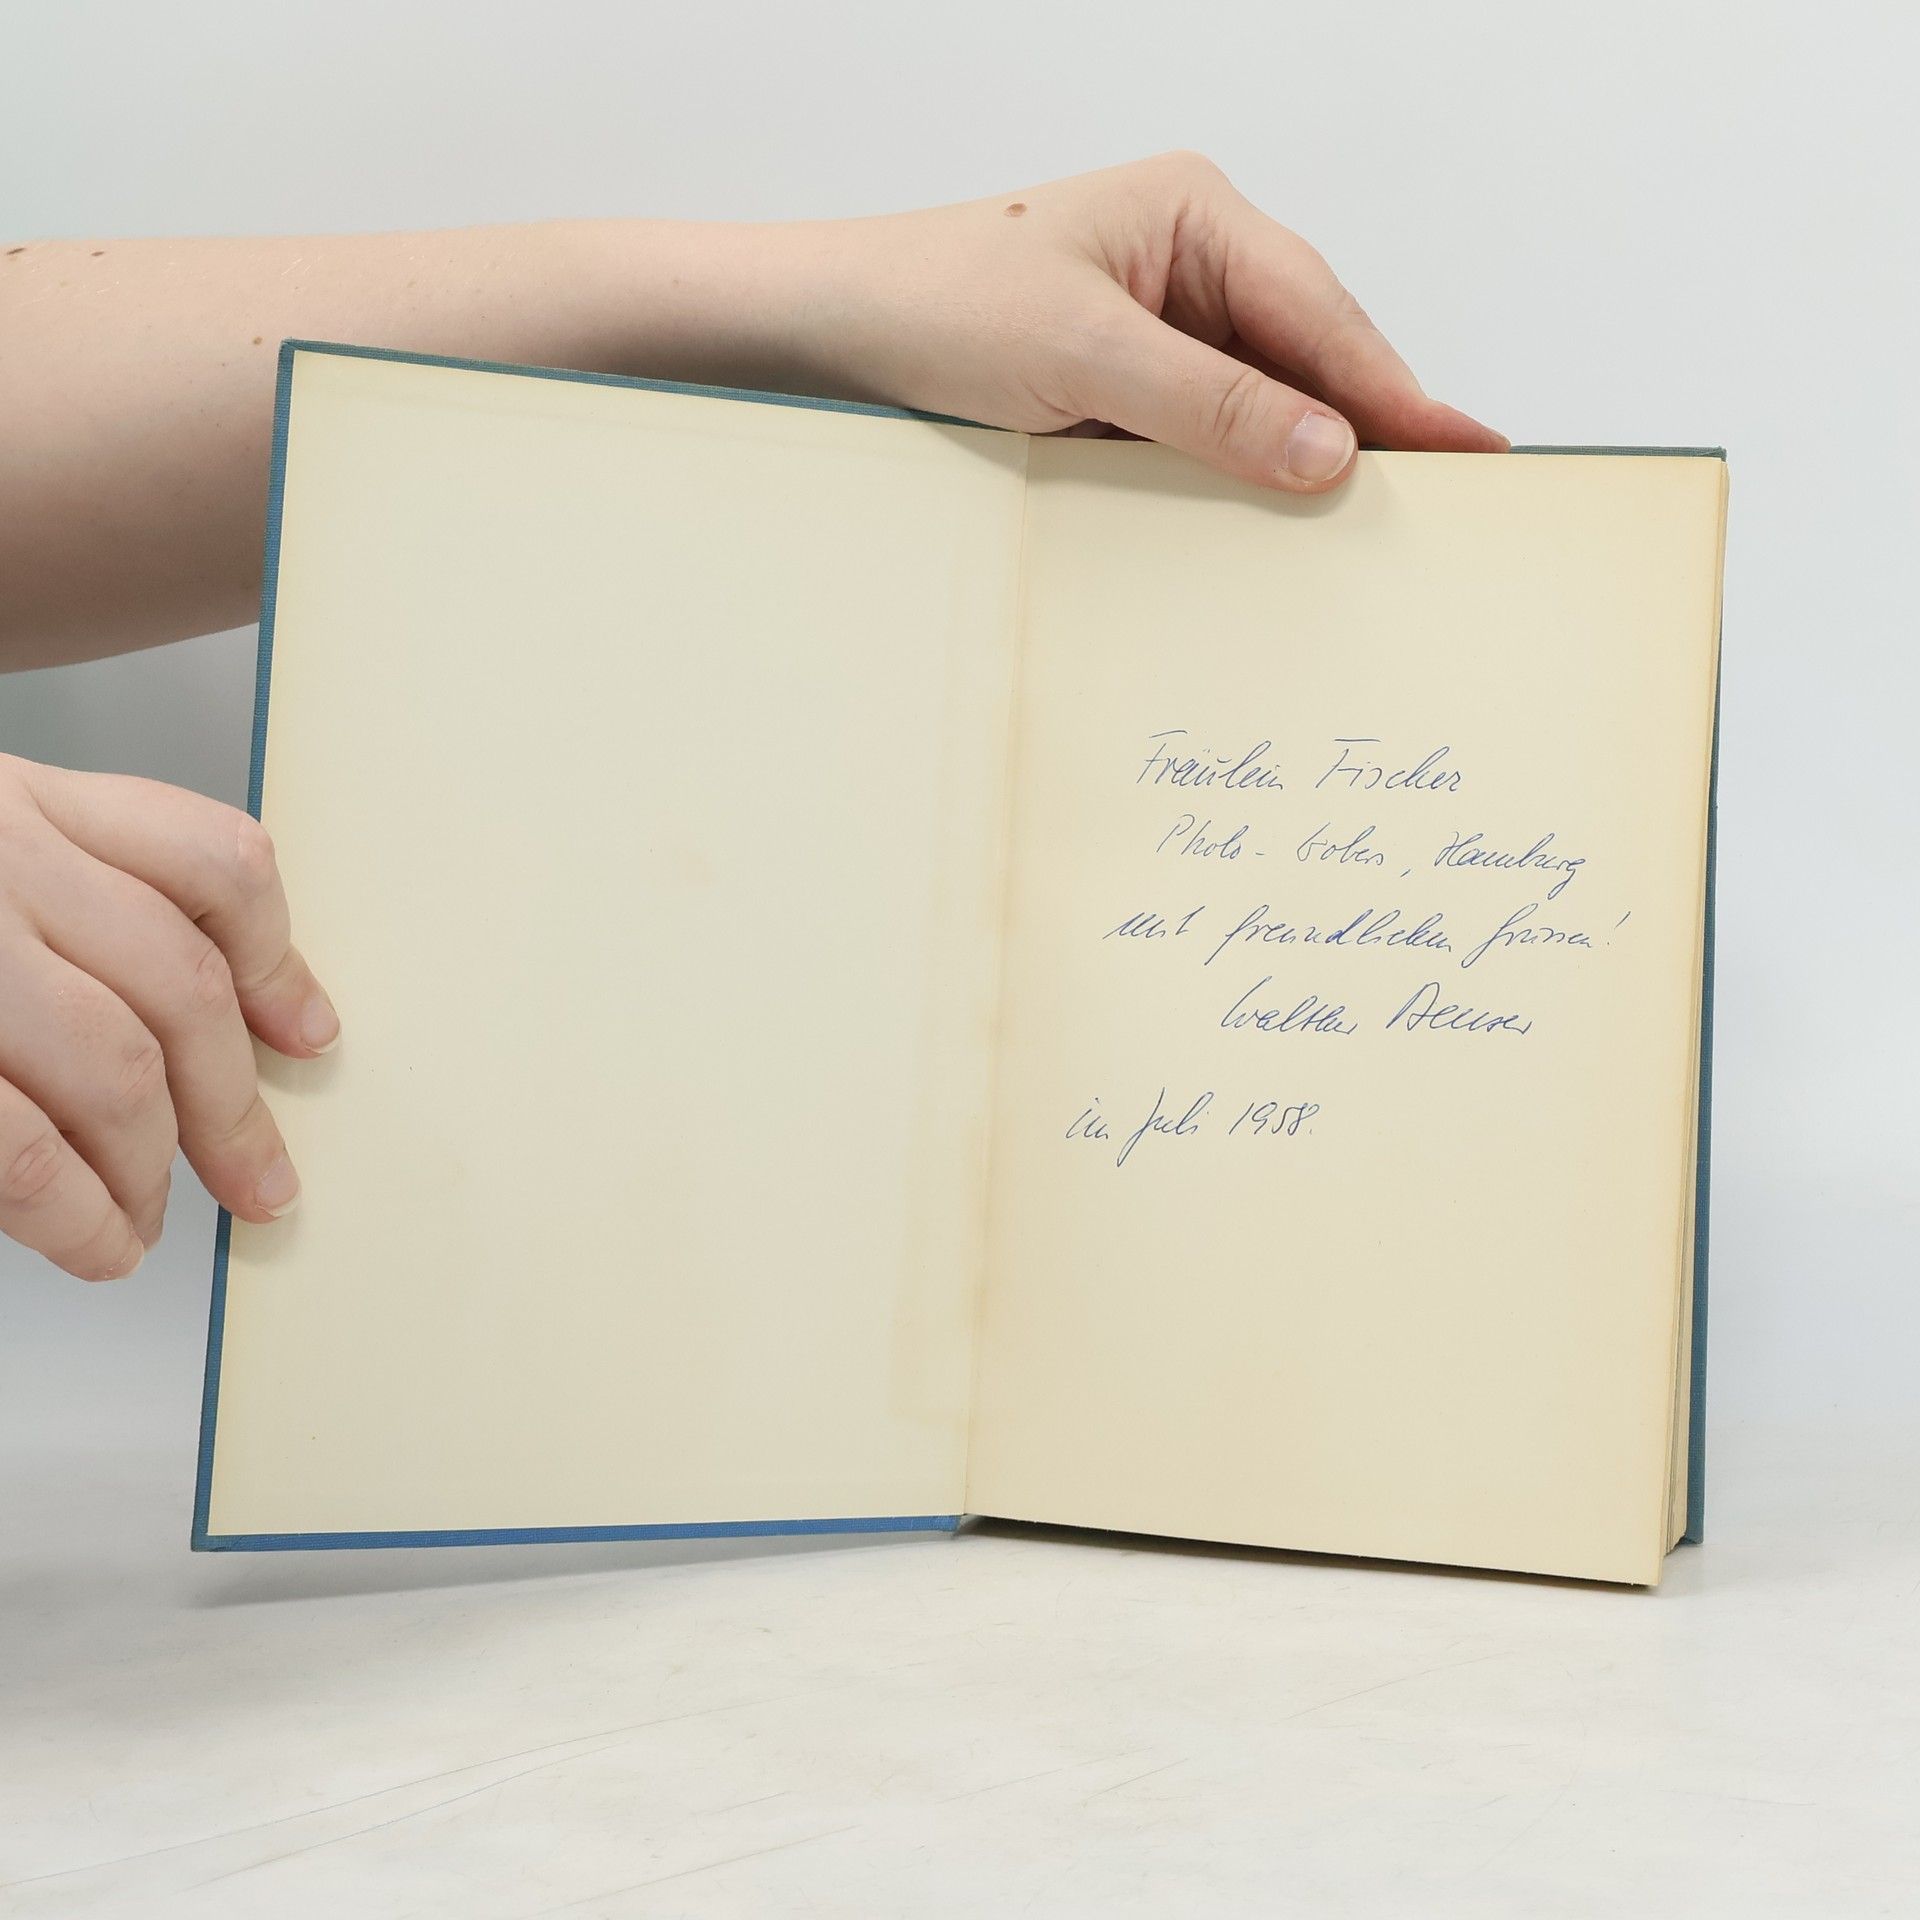 Fräulein Fischer
Photo - Wobers, Hamburg
mit freundlichen Grüssen!
Walther Benser
im Juli 1958.